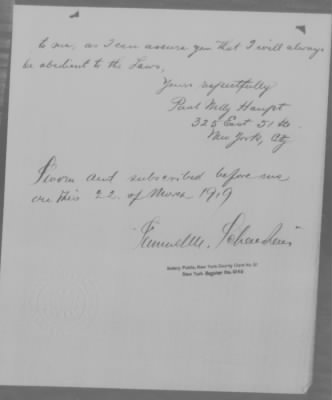 to me, as I can assure you that I will always
be obedient to the Laws,
Yours respectfully
Paul Willy Haupt
325 East 51 st.
New York, City
Sworn and subscribed before me
on this 22. of March 1919
Notary Public, New York County Clerk No.
New York Register No.